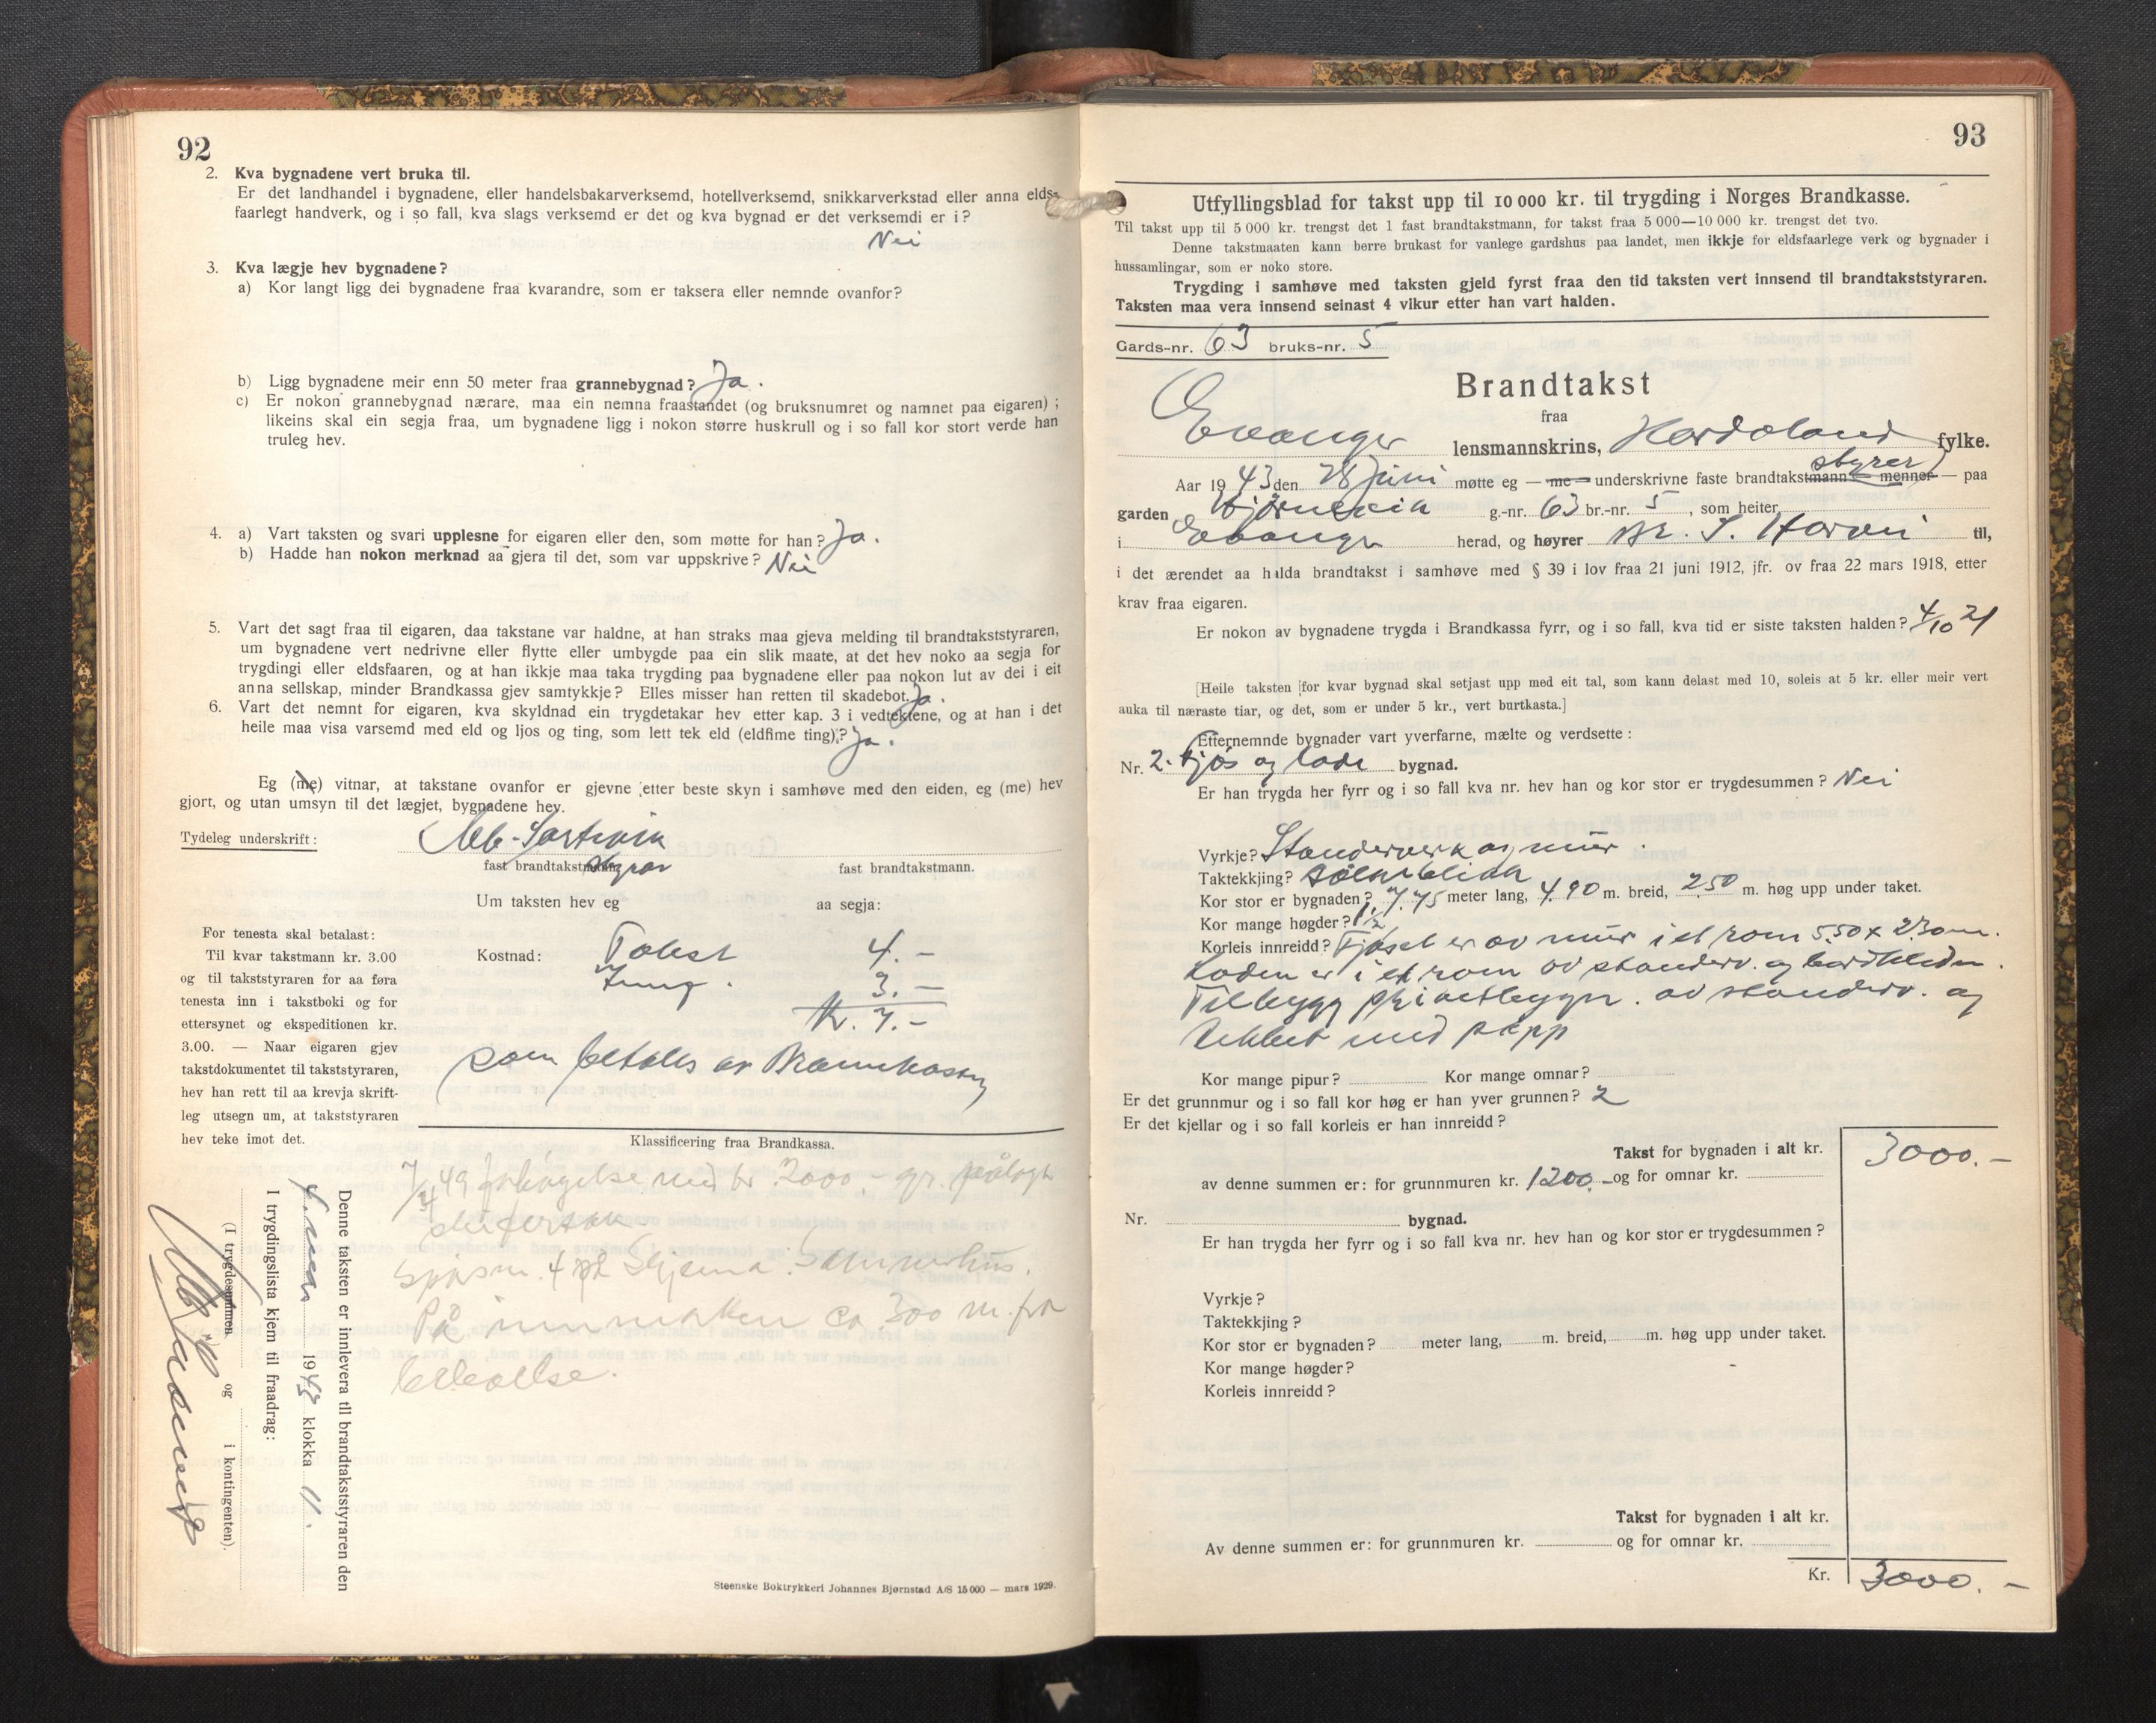 92
2. Kva bygnadene vert bruka til.
Er det landhandel i bygnadene, eller handelsbakarverksemd, hotellverksemd, snikkarverkstad eller anna elds-
faarlegt handverk, og i so fall, kva slags verksemd er det og kva bygnad er det verksemdi er i?
Nei
3. Kva lægje hev bygnadene?
a) Kor langt ligg dei bygnadene fraa kvarandre, som er taksera eller nemnde ovanfor?
b) Ligg bygnadene meir enn 50 meter fraa grannebygnad? Ja.
c) Er nokon grannebygnad nærare, maa ein nemna fraastandet (og bruksnumret og namnet paa eigaren);
likeins skal ein segja fraa, um bygnadene ligg i nokon større huskrull og i so fall kor stort verde han
truleg hev.
4. a) Vart taksten og svari upplesne for eigaren eller den, som møtte for han? Ja.
b) Hadde han nokon merknad aa gjera til det, som var uppskrive? Nei
5. Vart det sagt fraa til eigaren, daa takstane var haldne, at han straks maa gjeva melding til brandtakststyraren,
um bygnadene vert nedrivne eller flytte eller umbygde paa ein slik maate, at det hev noko aa segja for
trygdingi eller eldsfaaren, og at han ikkje maa taka trygding paa bygnadene eller paa nokon lut av dei i eit
anna sellskap, minder Brandkassa gjev samtykkje? Elles misser han retten til skadebot. Ja.
6. Vart det nemnt for eigaren, kva skyldnad ein trygdetakar hev etter kap. 3 i vedtektene, og at han i det
heile maa visa varsemd med eld og ljos og ting, som lett tek eld (eldfime ting)? Ja.
Eg (me) vitnar, at takstane ovanfor er gjevne etter beste skyn i samhøve med den eiden, eg (me) hev
gjort, og utan umsyn til det lægjet, bygnadene hev.
Tydeleg underskrift:
fast brandtakstmann styrar fast brandtakstmann.
Um taksten hev eg aa segja:
For tenesta skal betalast:
Til kvar takstmann kr. 3.00
og til takststyraren for aa føra
tenesta inn i takstboki og for
ettersynet og ekspeditionen kr.
3.00. — Naar eigaren gjev
takstdokumentet til takststyraren,
hev han rett til aa krevja skrift-
leg utsegn um, at takststyraren
hev teke imot det.
Kostnad: Takst 4.-
3.-
Kr. 7.-
som betales av Brannkassen
Klassificering fraa Brandkassa.
7/4 49 forhøgelse med kr 2000.- gr. pålagt
4 på Skjema. Sommerhus.
På innmarken ca. 300 m. fra
beboelse.
Denne taksten er innlevera til brandtakststyraren den
1943 klokka 11.
I trygdingslista kjem til fraadrag:
(I trygdesummen og i kontingenten).
Steenske Boktrykkeri Johannes Bjørnstad A/S 15 000 — mars 1929.
93
Utfyllingsblad for takst upp til 10 000 kr. til trygding i Norges Brandkasse.
Til takst upp til 5 000 kr. trengst det 1 fast brandtakstmann, for takst fraa 5 000—10 000 kr. trengst det tvo.
Denne takstmaaten kann berre brukast for vanlege gardshus paa landet, men ikkje for eldsfaarlege verk og bygnader i
hussamlingar, som er noko store.
Trygding i samhøve med taksten gjeld fyrst fraa den tid taksten vert innsend til brandtakststyraren.
Taksten maa vera innsend seinast 4 vikur etter han vart halden.
Gards-nr. 63 bruks-nr. 5
Brandtakst
fraa
Evanger lensmannskrins, Hordaland fylke.
Aar 1943 den 28 juni møtte eg — me — underskrivne faste brandtakstmann — menner styrer — paa
garden g.-nr. 63 br.-nr. 5, som heiter
i Evanger herad, og høyrer til,
i det ærendet aa halda brandtakst i samhøve med § 39 i lov fraa 21 juni 1912, jfr. ov fraa 22 mars 1918, etter
krav fraa eigaren.
Er nokon av bygnadene trygda i Brandkassa fyrr, og i so fall, kva tid er siste taksten halden? 4/10 21
[Heile taksten for kvar bygnad skal setjast upp med eit tal, som kann delast med 10, soleis at 5 kr. eller meir vert
auka til næraste tiar, og det, som er under 5 kr., vert burtkasta.]
Etternemnde bygnader vart yverfarne, mælte og verdsette:
Nr. 2. Fjøs og lade bygnad.
Er han trygda her fyrr og i so fall kva nr. hev han og kor stor er trygdesummen? Nei
Vyrkje? Standerverk og mur.
Taktekkjing? bølgeblikk
Kor stor er bygnaden? 7.75 meter lang, 4.90 m. breid, 2.50 m. høg upp under taket.
Kor mange høgder? 1 1/2
Korleis innreidd? Fjøset er av mur i et rom 5.50 x 2.30 m.
Laden er i et rom av standerv. og bordkleden.
Tilbygg av standerv. og
tekket med papp
Kor mange pipur? Kor mange omnar?
Er det grunnmur og i so fall kor høg er han yver grunnen? 2
Er det kjellar og i so fall korleis er han innreidd?
Takst for bygnaden i alt kr. 3000.-
av denne summen er: for grunnmuren kr. 1200.- og for omnar kr.
Nr. bygnad.
Er han trygda her fyrr og i so fall kva nr. hev han og kor stor er trygdesummen?
Vyrkje?
Taktekkjing?
Kor stor er bygnaden? meter lang, m. breid, m. høg upp under taket.
Kor mange høgder?
Korleis innreidd?
Takst for bygnaden i alt kr.
Av denne summen er: for grunnmuren kr. og for omnar kr.
Kr. 3000.-